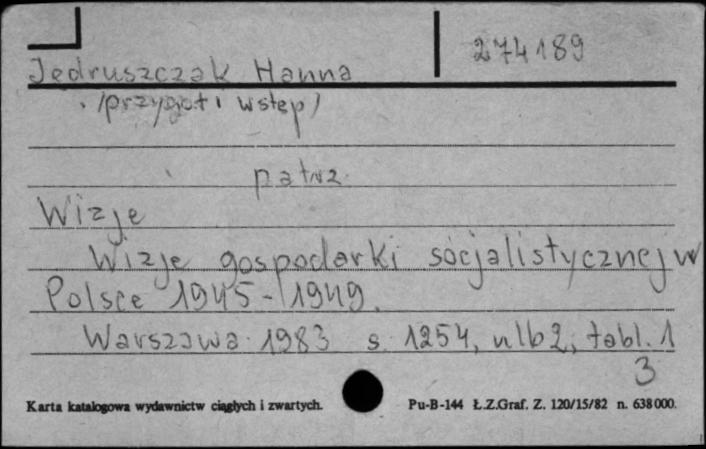 274189
Jędruszczak Hanna
/przygot i wstęp/
patrz
Wizje
Wizje gospodarki socjalistycznej w
Polsce 1945-1949.
Warszawa 1983 s. 1254, nlb 2, tabl. 1
3
Karta katalogowa wydawnictw ciągłych i zwartych.
Pu-B-144 Ł.Z.Graf. Z. 120/15/82 n. 638000.